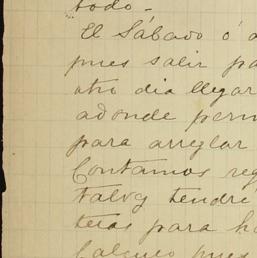 todo -
El Sábado ó a
pues salir pa
otro dia llegar
adonde perm
para arreglar
Contamos reg
Talvez tendré
teras para ha